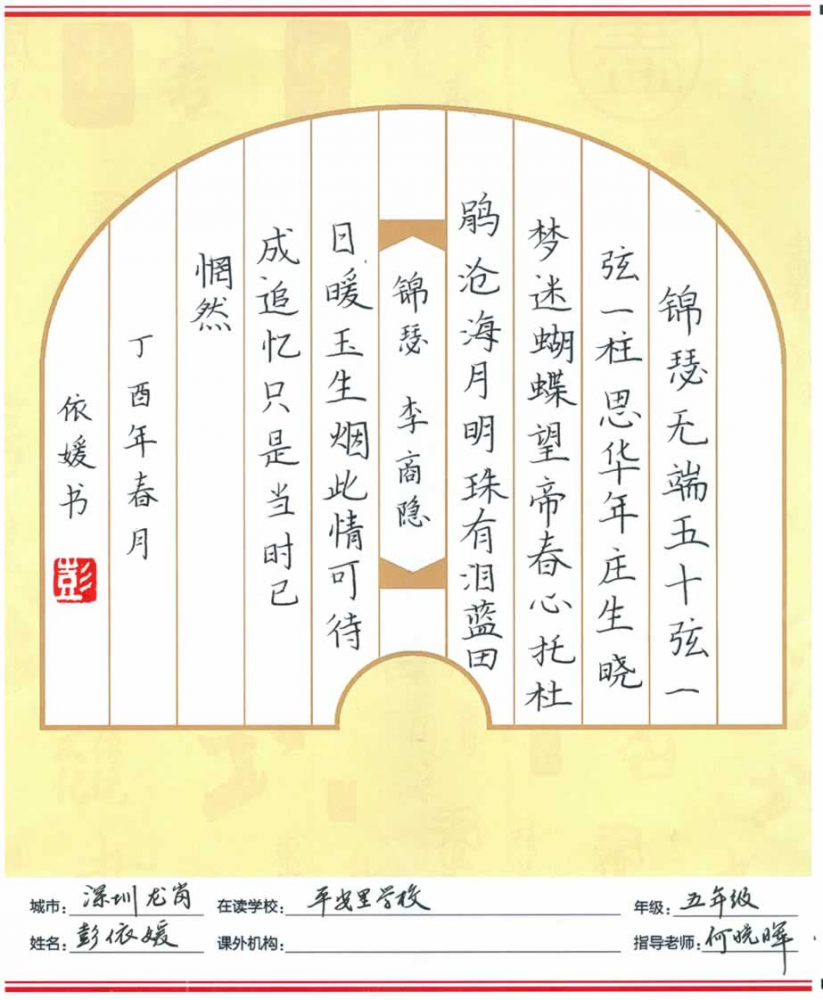 锦瑟无端五十弦一
弦一柱思华年庄生晓
梦迷蝴蝶望帝春心托杜
鹃沧海月明珠有泪蓝田
锦瑟 李商隐
日暖玉生烟此情可待
成追忆只是当时已
惘然
丁酉年春月
依媛书
彭
城市：深圳龙岗 在读学校：平安里学校 年级：五年级
姓名：彭依媛 课外机构： 指导老师：何晓晖